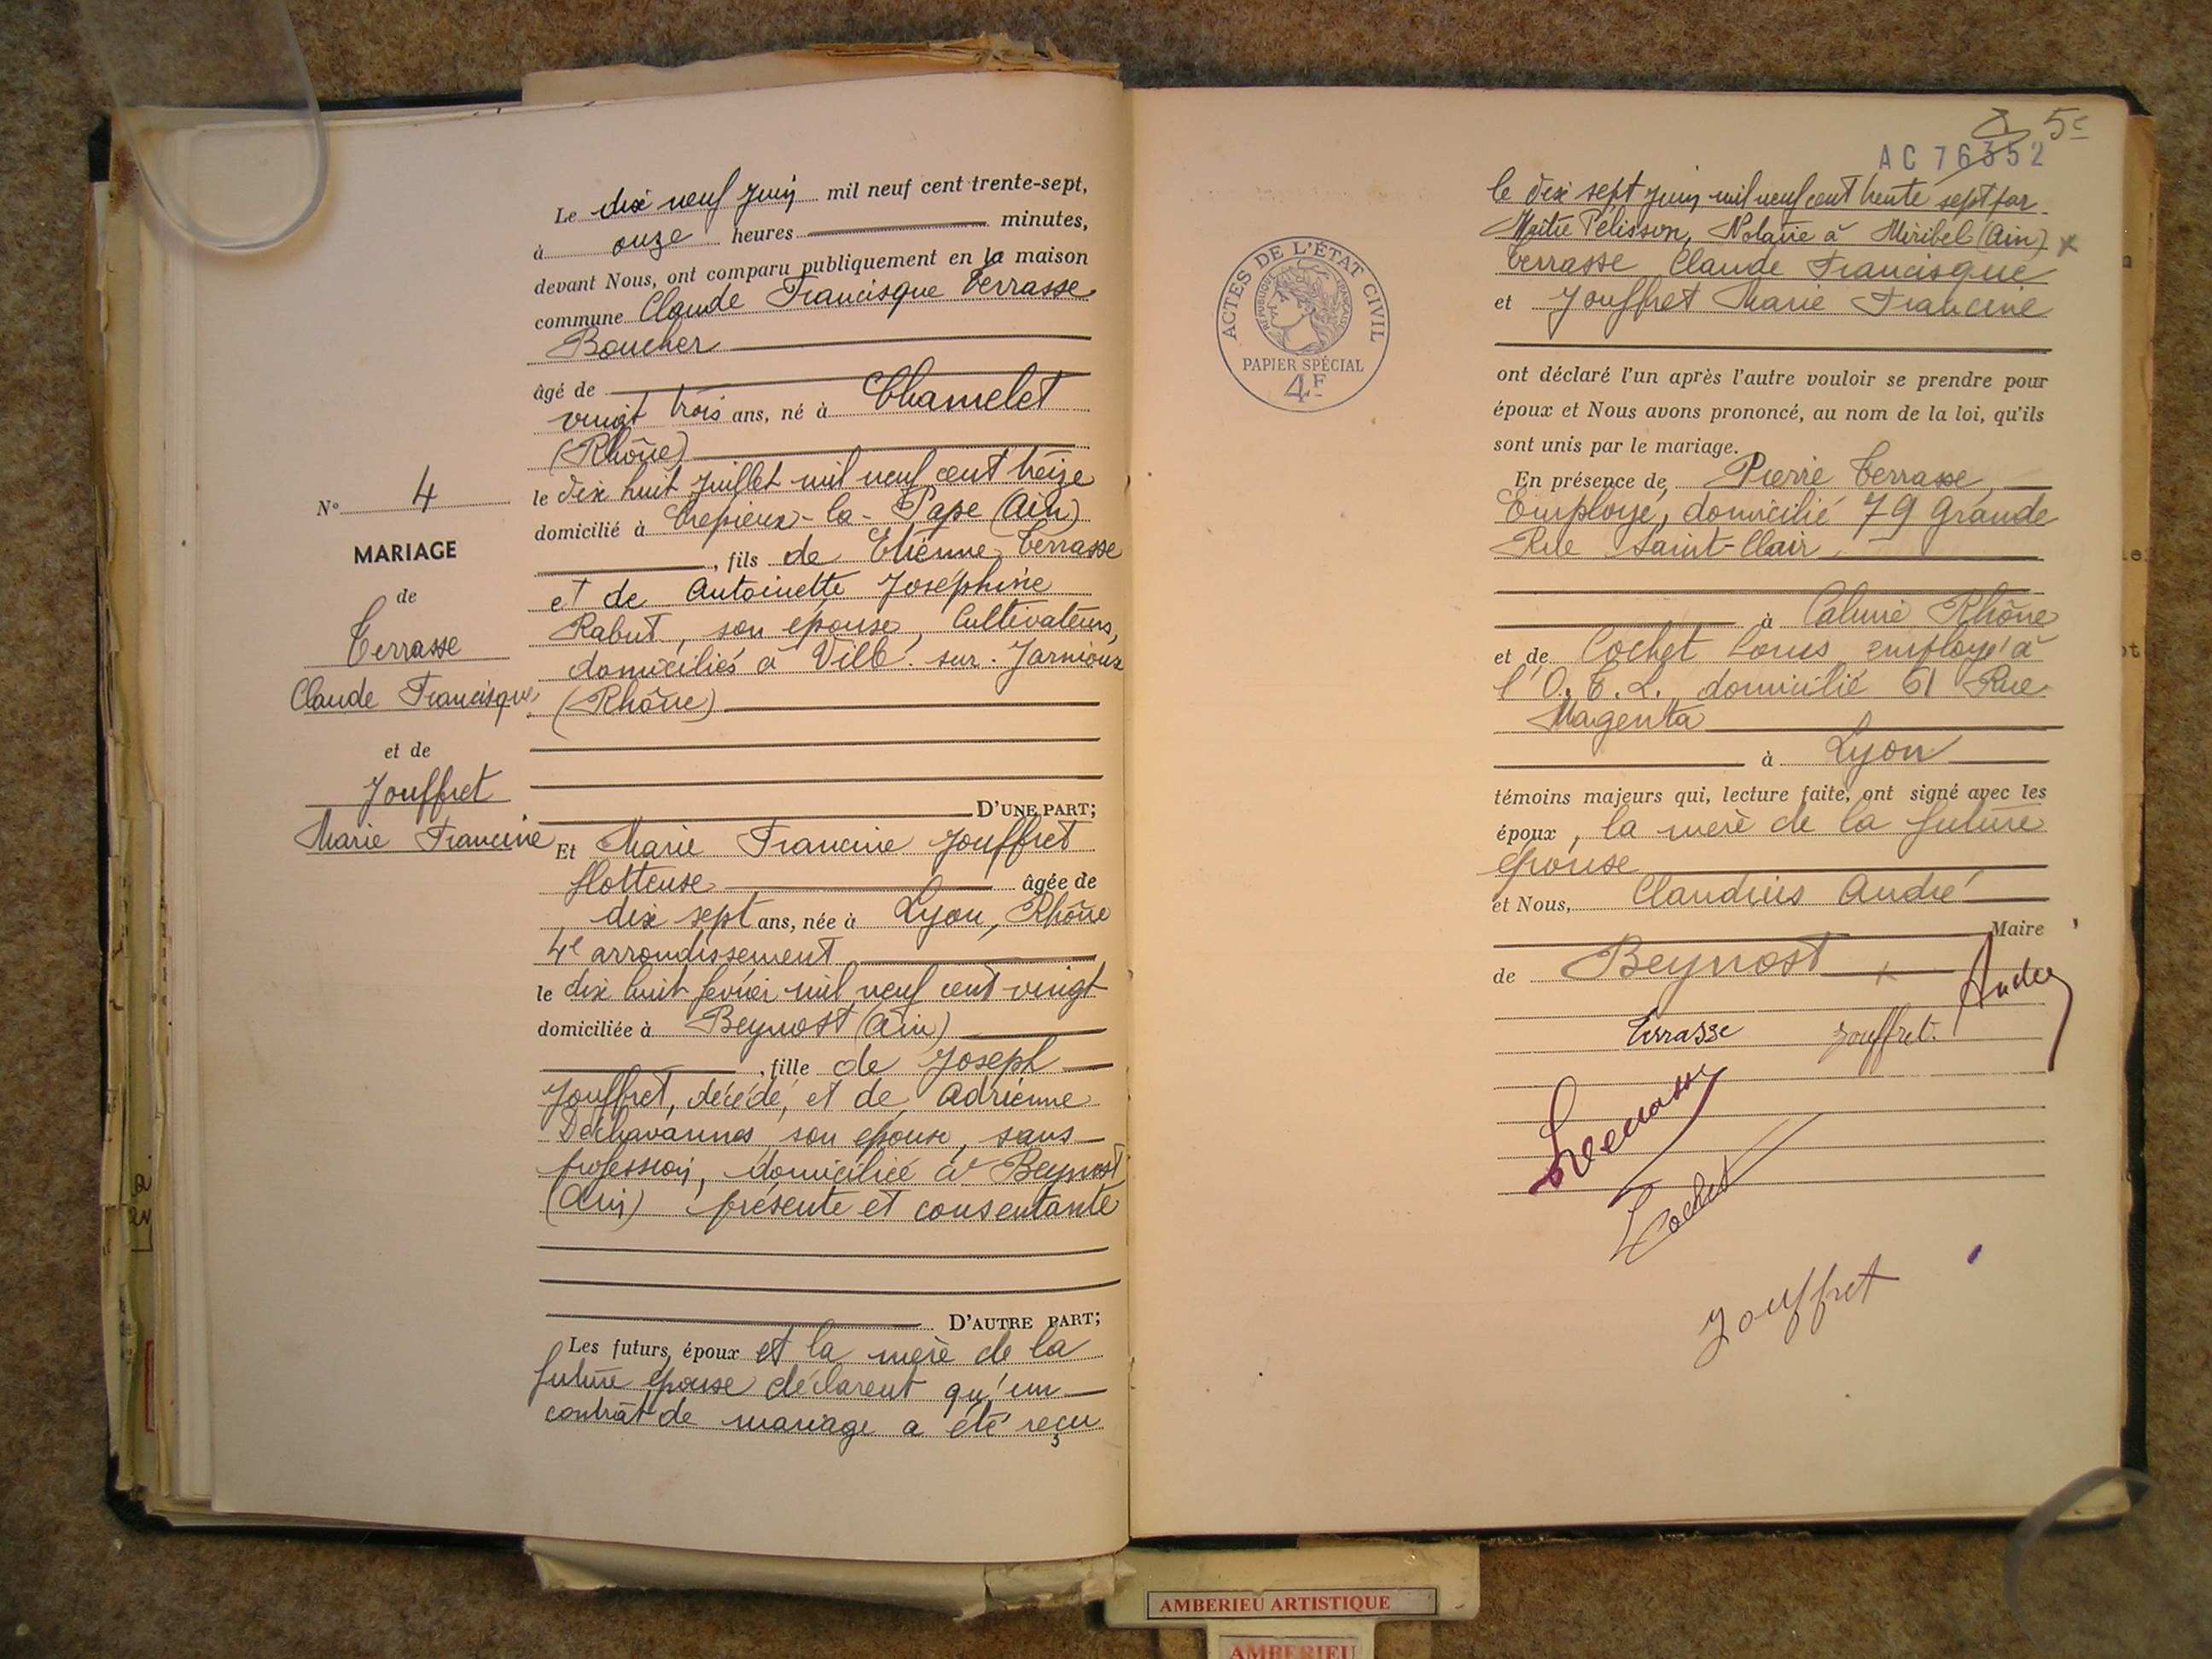 Le dix neuf Juin mil neuf cent trente-sept,
à onze heures minutes,
devant Nous, ont comparu publiquement en la maison
commune Claude Francisque Terrasse
Boucher
âgé de
vingt trois ans, né à Chamelet
(Rhône)
le dix huit Juillet mil neuf cent treize
domicilié à Crépieux-la-Pape (Ain)
, fils de Etienne Terrasse
et de Antoinette Joséphine
Rabut, son épouse, Cultivateurs,
domiciliés à Ville-sur-Jarnioux
(Rhône)
D'UNE PART;
Nº 4
MARIAGE
de
Terrasse
Claude Francisque
et de
Jouffret
Marie Francine
Et Marie Francine Jouffret
flotteuse âgée de
dix sept ans, née à Lyon, Rhône
4e arrondissement
le dix huit février mil neuf cent vingt
domiciliée à Beynost (Ain)
, fille de Joseph
Jouffret, décédé, et de Adrienne
Dechavannes son épouse, sans
profession, domiciliée à Beynost
(Ain) présente et consentante
D'AUTRE PART;
Les futurs époux et la mère de la
future épouse déclarent qu'un
contrat de mariage a été reçu
5e
AC 76352
le dix sept Juin mil neuf cent trente sept par
Maître Pélisson, Notaire à Miribel (Ain) x
Terrasse Claude Francisque
et Jouffret Marie Francine
ont déclaré l'un après l'autre vouloir se prendre pour
époux et Nous avons prononcé, au nom de la loi, qu'ils
sont unis par le mariage.
En présence de Pierre Terrasse,
Employé, domicilié 79 Grande
Rue Saint-Clair,
à Caluire Rhône
et de Cochet Louis employé à
l'O.T.L. domicilié 61 Rue
Magenta
à Lyon
témoins majeurs qui, lecture faite, ont signé avec les
époux, la mère de la future
épouse
et Nous, Claudius André
Maire
de Beynost x
André
Terrasse Jouffret.
Cochet
Jouffret
ACTES DE L'ÉTAT CIVIL
RÉPUBLIQUE FRANÇAISE
PAPIER SPÉCIAL
4F
AMBERIEU ARTISTIQUE
AMBERIEU